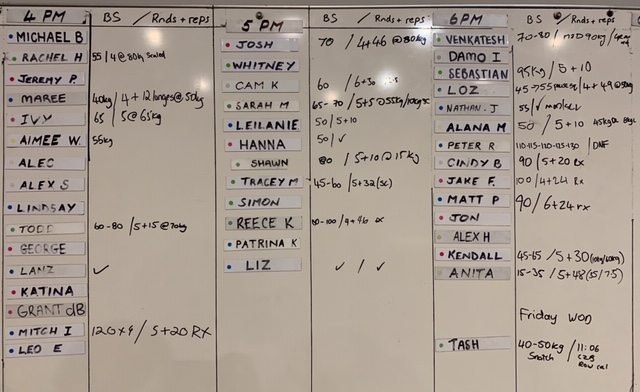 4 PM BS / Rnds + reps
MICHAEL B
RACHEL H 55 / 4 @ 80kg Scaled
JEREMY P
MAREE 40kg / 4 + 12 lunges @ 50kg
IVY 65 / 5 @ 65kg
AIMEE W. 55kg
ALEC
ALEX S
LINDSAY
TODD 60-80 / 5+15 @ 70kg
GEORGE
LANZ ✓
KATINA
GRANT dB
MITCH I 120x4 / 5+20 RX
LEO E
5 PM BS / Rnds + reps
JOSH 70 / 4+46 @ 80kg
WHITNEY
CAM K 60 / 6+30
SARAH M 65-70 / 5+5 @ 55kg/100kg sc
LEILANIE 50 / 5+10
HANNA 50 / ✓
SHAWN 80 / 5+10 @ 75kg
TRACEY M 45-60 / 5+32 (sc)
SIMON
REECE K 80-100 / 4+46 rx
PATRINA K
LIZ ✓ / ✓
6 PM BS / Rnds + reps
VENKATESH 70-80 /
DAMO I
SEBASTIAN 95kg / 5+10
LOZ 45-75
NATHAN. J 55 / ✓
ALANA M 50 / 5+10
PETER R 110-115-120-125-130 / DNF
CINDY B 90 / 5+20 Rx
JAKE F. 100 / 4+24 Rx
MATT P 90 / 6+24 rx
JON
ALEX H
KENDALL 45-65 / 5+30
ANITA 15-35 / 5+48 (55/75)
Friday WOD
TASH 40-50kg / 11:06
Snatch
Row cal